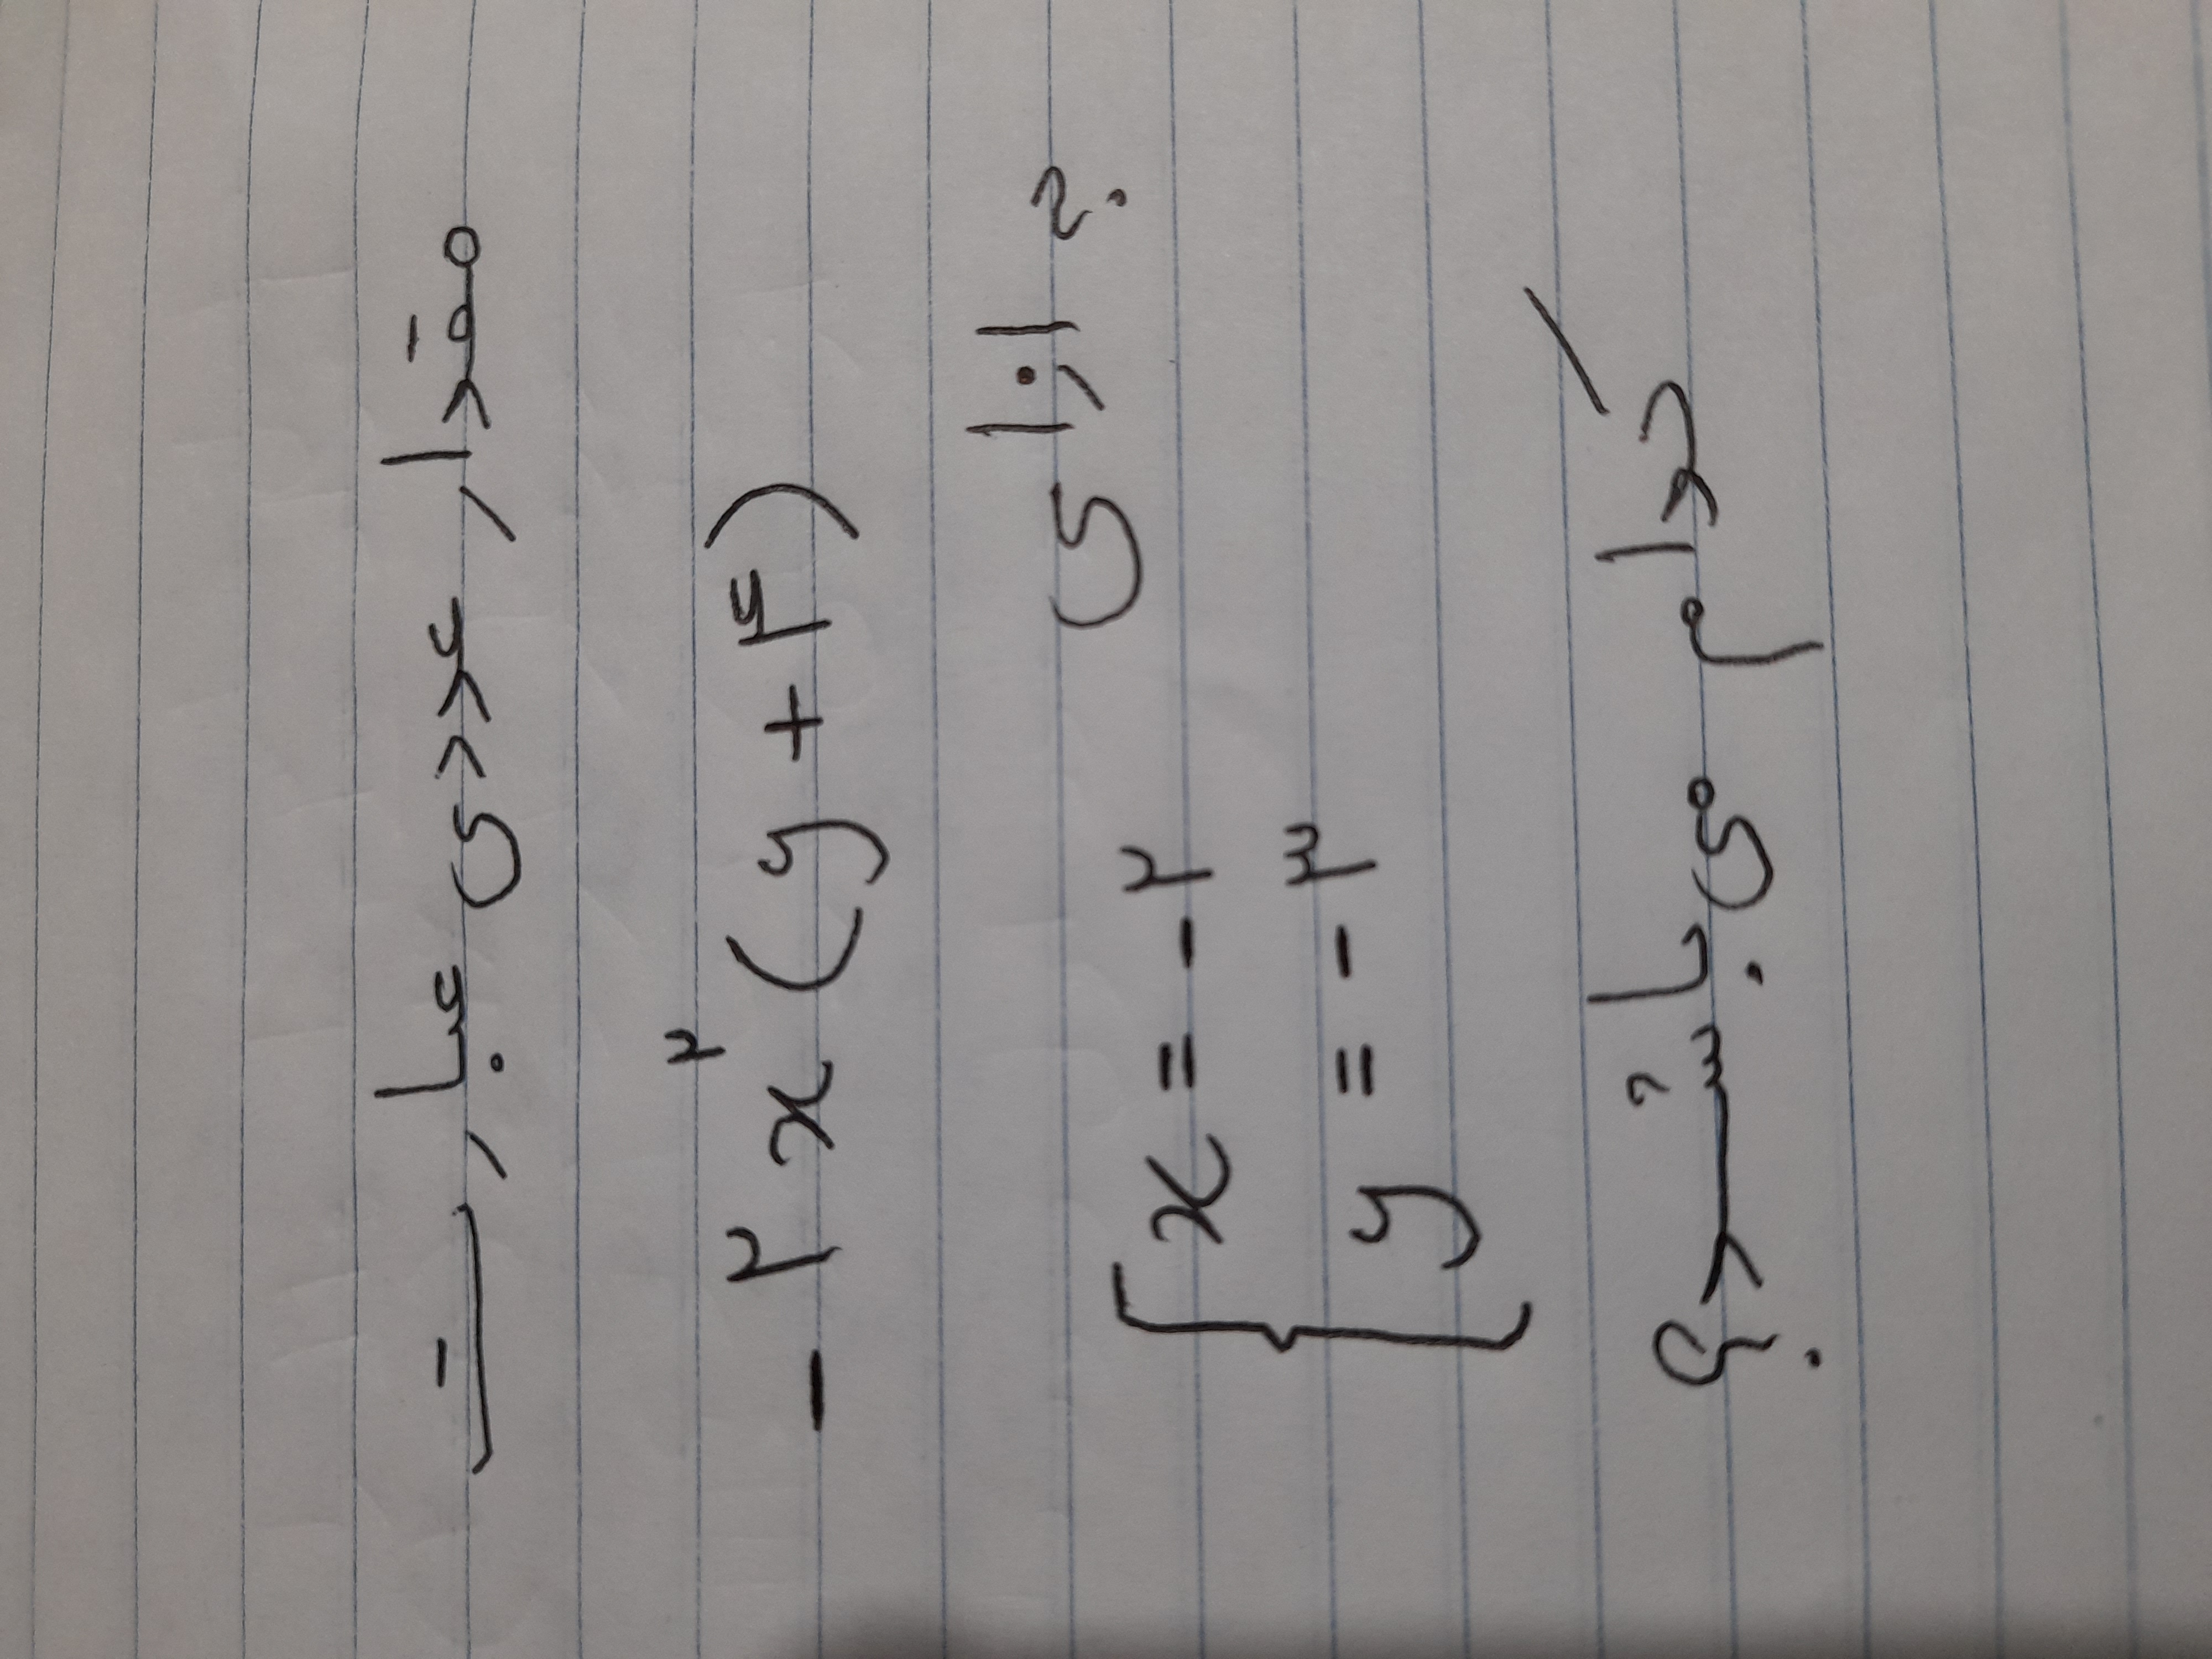 مقدار عددی عبارت
-۲x^۲(y+۴)
به ازای
x = -۲
y = -۳
کدام می‌باشد؟